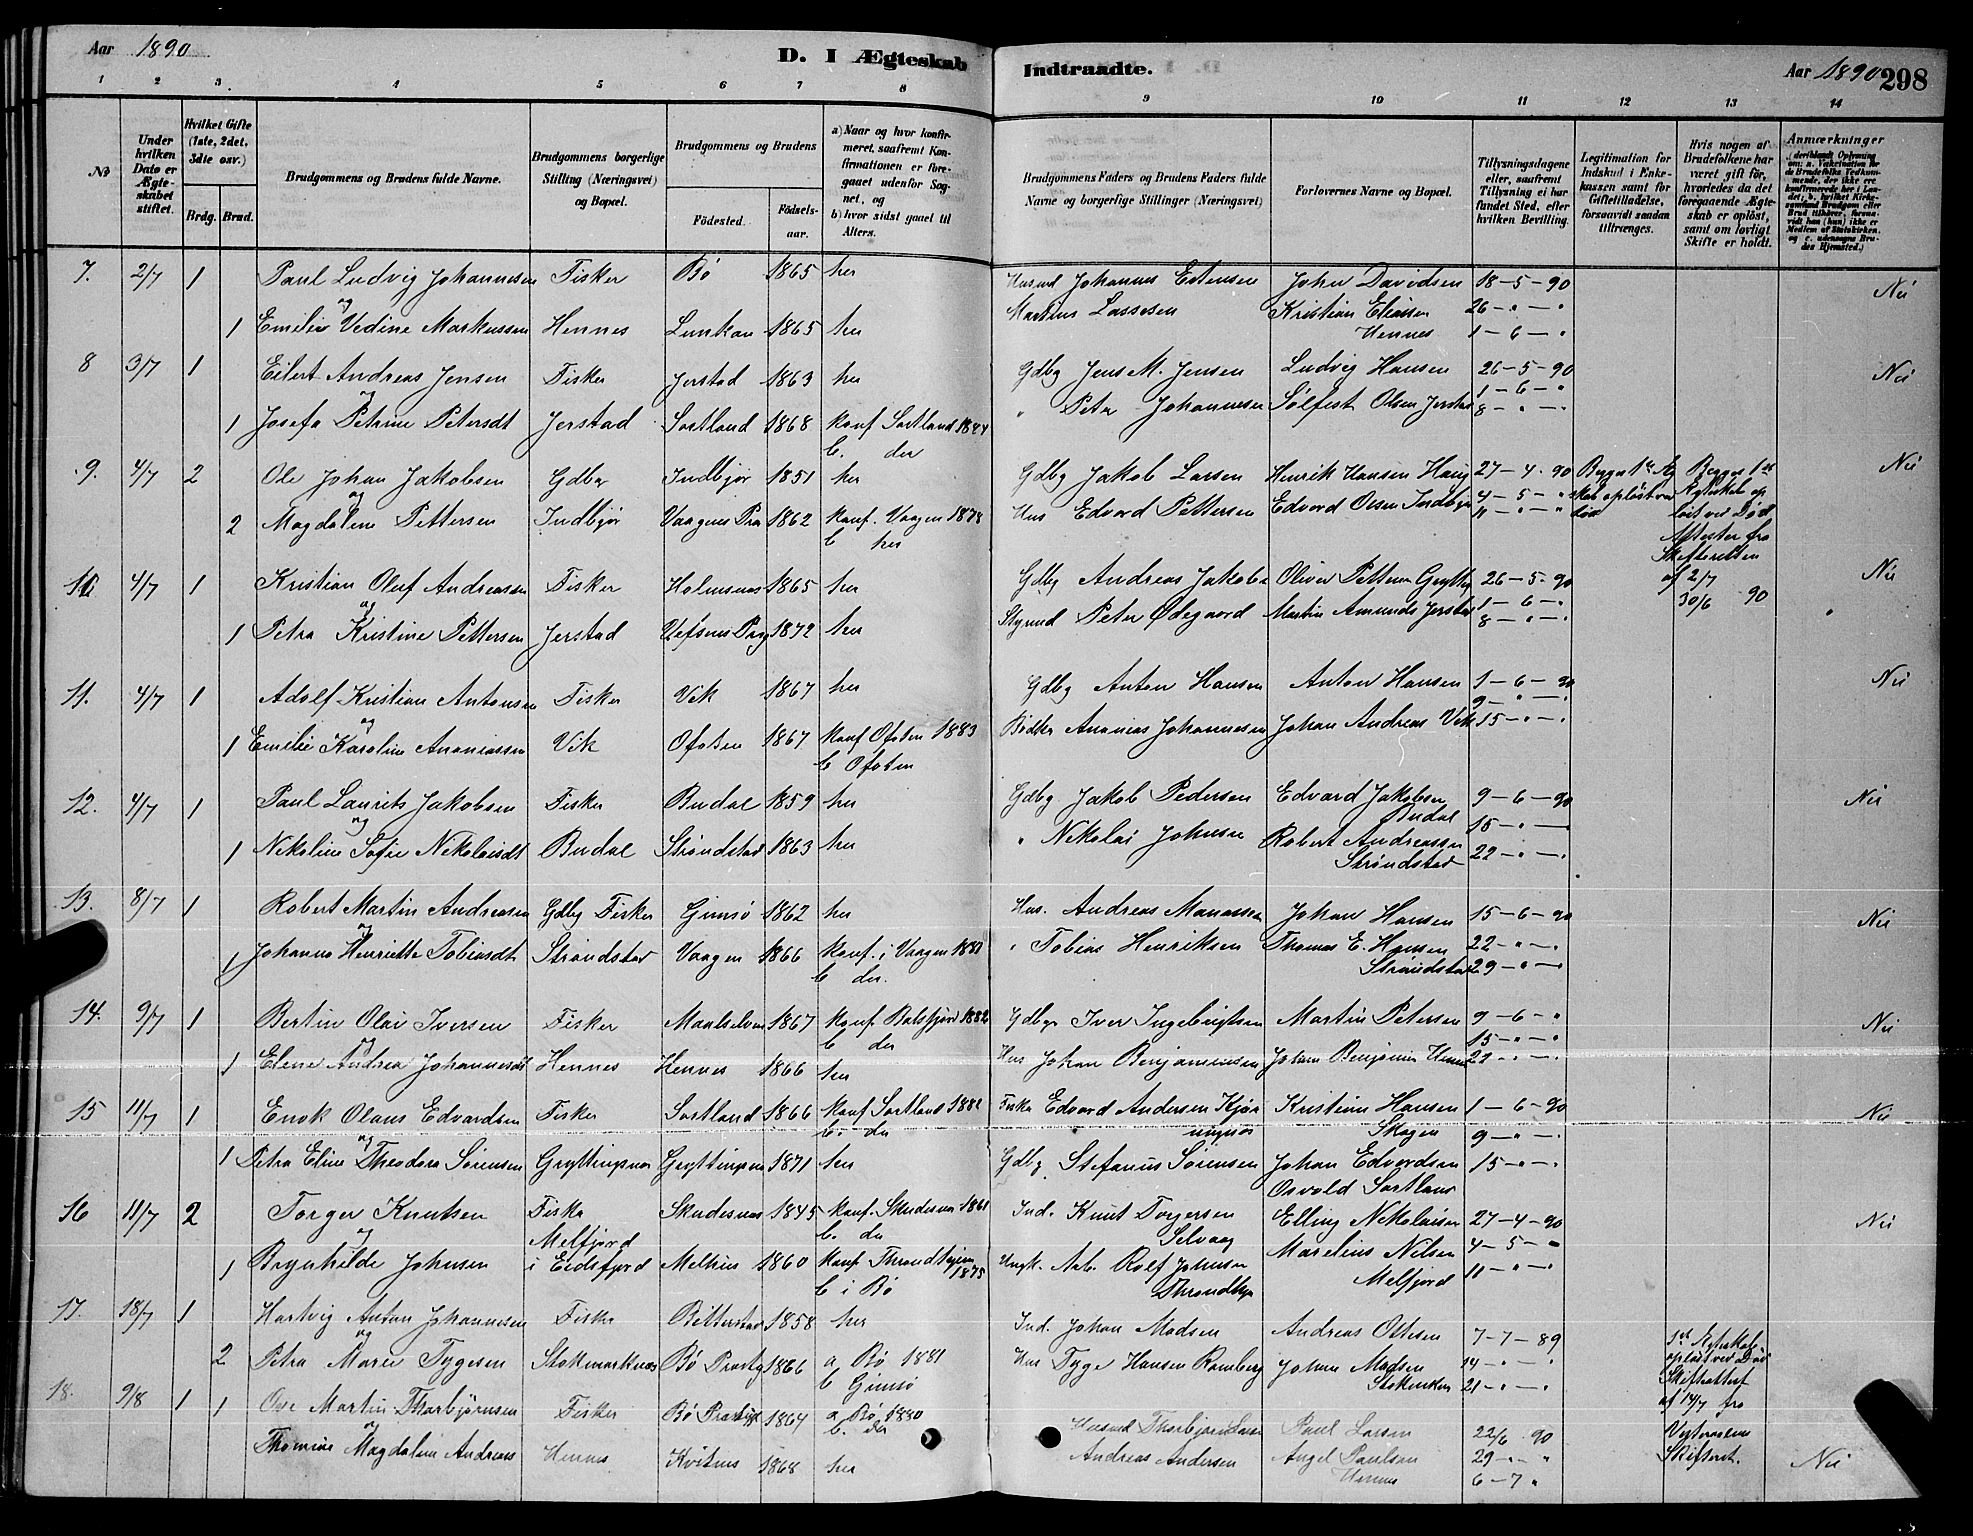 Aar 1890
D. I Ægteskab Indtraadte.
Aar 1890 298
1 2 3. 4 5 6 7 8 9 10 11 12 13 14
No
Under hvilken Dato er Ægteskabet stiftet.
Hvilket Gifte (1ste, 2det, 3die osv.)
Brdg. Brud.
Brudgommens og Brudens fulde Navne.
Brudgommens borgerlige Stilling (Næringsvei) og Bopæl.
Brudgommens og Brudens
Födested. Födsels-aar.
a) Naar og hvor konfirmeret, saafremt Konfirmationen er foregaaet udenfor Sognet, og
b) hvor sidst gaaet til Alters.
Brudgommens Faders og Brudens Faders fulde Navne og borgerlige Stillinger (Næringsvei)
Forlovernes Navne og Bopæl.
Tillysningsdagene eller, saafremt Tillysning ei har fundet Sted, efter hvilken Bevilling.
Legitimation for Indskud i Enkekassen samt for Giftetilladelse, forsaavidt saadan tiltrænges.
Hvis nogen af Brudefolkene har været gift før, hvorledes da det foregaaende Ægteskab er opløst, samt om lovligt Skifte er holdt.
Anmærkninger
7. 2/7 1 Paul Ludvig Johannesen Fisker Bö 1865 her Husmd Johannes Estensen John Davidsen 18-5-90 Nei
og
1 Emilie Vedine Markussen Hennes Lunkan 1865 her Markus Lassesen Kristian Eliassen 26-"-"
Hennes 1-6-"
8 3/7 1 Eilert Andreas Jensen Fisker Jerstad 1863 her Gdbg Jens M. Jensen Ludvig Hansen 26-5-90 Nei
og 1-6-"
1 Josefa Petrine Petersdt Jerstad Sortland 1868 konf Sortland 1884 " Peter Johannesen Sölfest Olsen Jerstad 8-"-"
b. der
9. 4/7 2 Ole Johan Jakobsen Gdbr Indbjör 1851 her Gdbg Jakob Larsen Henrik Hansen Haug 27-4-90 Nei
og 4-5-"
2 Magdalene Pettersen Indbjör Vaagens Prg 1862 konf. Vaagen 1878 Hus Edvard Pettersen Edvard Olsen Indbjör 11-"-"
b her
Begges 1ste Ægteskab opløst ved Død
Attester fra Skifteretten
af 2/7
30/6 90
10 4/7 1 Kristian Oluf Andreassen Fisker Holmsnes 1865 her Gdbg Andreas Jakobs Oliver Pettersen Grytting 26-5-90 Nei
og 1-6-"
1 Petra Kristine Pettersen Jerstad Vefsens Prg 1872 her Styrmd Peter Ödegaard Martin Amundsen Jerstad 8-"-"
11. 4/7 1 Adolf Kristian Antonsen Fisker Vik 1867 her Gdbg Anton Hansen Anton Hansen 1-6-90 Nei
og 9-"-"
1 Emilie Karoline Ananiassen Vik Ofoten 1867 konf Ofoten 1883 Bödker Ananias Johannesen Johan Andreas Vik 15-"-"
b Ofoten
12. 4/7 1 Paul Laurits Jakobsen Fisker Budal 1859 her Gdbg Jakob Pedersen Edvard Jakobsen 9-6-90 Nei
og Budal 15-"-
1 Nikoline Sofie Nikolaisdt Budal Strøndstad 1863 her " Nikolai Johnsen Robert Andreassen
Strøndstad 22-"-"
13. 8/7 1 Robert Martin Andreasen Gdbg Fisker Gimsö 1862 her Hus. Andreas Manassen Johan Hansen 15-6-90 Nei
og
1 Johanna Henriette Tobiasdt Strøndstad Vaagen 1866 konf. i Vaagen 1880 " Tobias Henriksen Thomas E. Hansen 22-"-"
b der. Strøndstad 29-"-"
14. 9/7 1 Bertin Olai Iversen Fisker Maalselven 1867 konf. Balsfjord 1882 Gdbgr Iver Ingebrigtsen Martin Petersen 9-6-" Nei
og b der 15-"-"
1 Elene Andrea Johannesdt Hennes Hennes 1866 her Hus Johan Benjaminsen Johan Benjamins Hennes 22-"-"
15 11/7 1 Enok Olaus Edvardsen Fisker Sortland 1866 konf Sortland 1882 Fisker Edvard Andersen Kjöringnes Kristian Hansen 1-6-90 Nei
og b. der Skagen 9-"-"
1 Petra Eline Theodora Sörensen Gryttingsnes Gryttingsnes 1871 her Gdbg Stefanus Sörensen Johan Edvardsen 15-"-"
Osvold Sortland
16 11/7 2 Torger Knutsen Fisker Skudesnes 1845 konf. Skudesnes 1861 Ind. Knut Torgersen Elling Nikolaisen 27-4-90 Nei
og Melfjord b. der Selvaag 4-5-"
1 Bryrhilde Johnsen i Eidsfjord Melhus 1860 konf Throndhjem 1875 Ungk. Arb. Rolf Johnsen Marelius Nilsen
b i Bö Throndhjem Melfjord 11-"-"
17. 18/7 1 Hartvig Antun Johannesen Fisker Bitterstad 1858 her Ind. Johan Madsen Andreas Ottesen 7-7-89
og
2 Petra Marie Tygesen Stokmarknes Bö Prestg 1866 a Bö 1881 Hus Tyge Hansen Ramberg Johan Madsen 14-"-"
b Gimsö Stokmarknes 21-"-"
1ste Ægteskab opløst ved Død
Skifteattest
af 14/7 fra
Vesteraalens
Skifteret.
18. 9/8 1 1 Ove Martin Thorbjørnsen Fisker Bö Prestg 1864 a Bö 1880 Husmd Thorbjørn Larsen Paul Larsen 22/6 90
og b. der
Thomine Magdalena Andreas Hennes Kvitnes 1868 her Andreas Andersen Angel Paulsen 29-"-" Nei
Hennes 6-7"